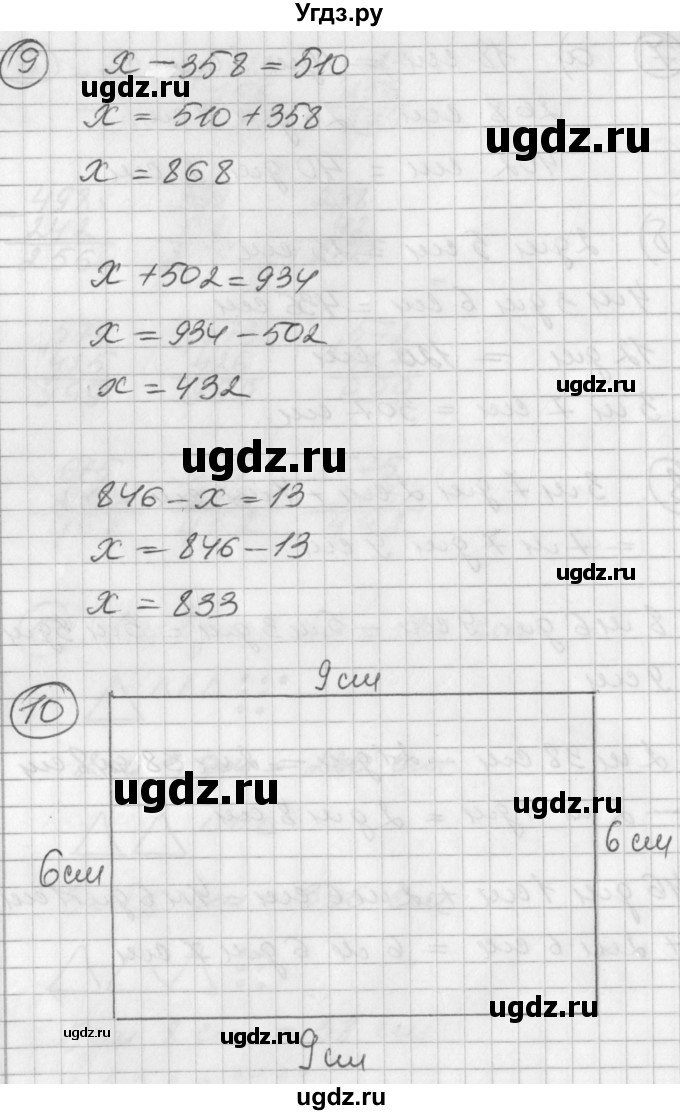 Угдз.ру
9
x - 358 = 510
ugdz.ru
x = 510 + 358
ugdz.ru
x = 868
x + 502 = 934
x = 934 - 502
x = 432
ugdz.ru
ugdz.ru
846 - x = 13
x = 846 - 13
ugdz.ru
x = 833
10
9 см
ugdz.ru
ugdz.ru
6 см
6 см
ugdz.ru
ugdz.ru
ugdz.ru
9 см
ugdz.ru